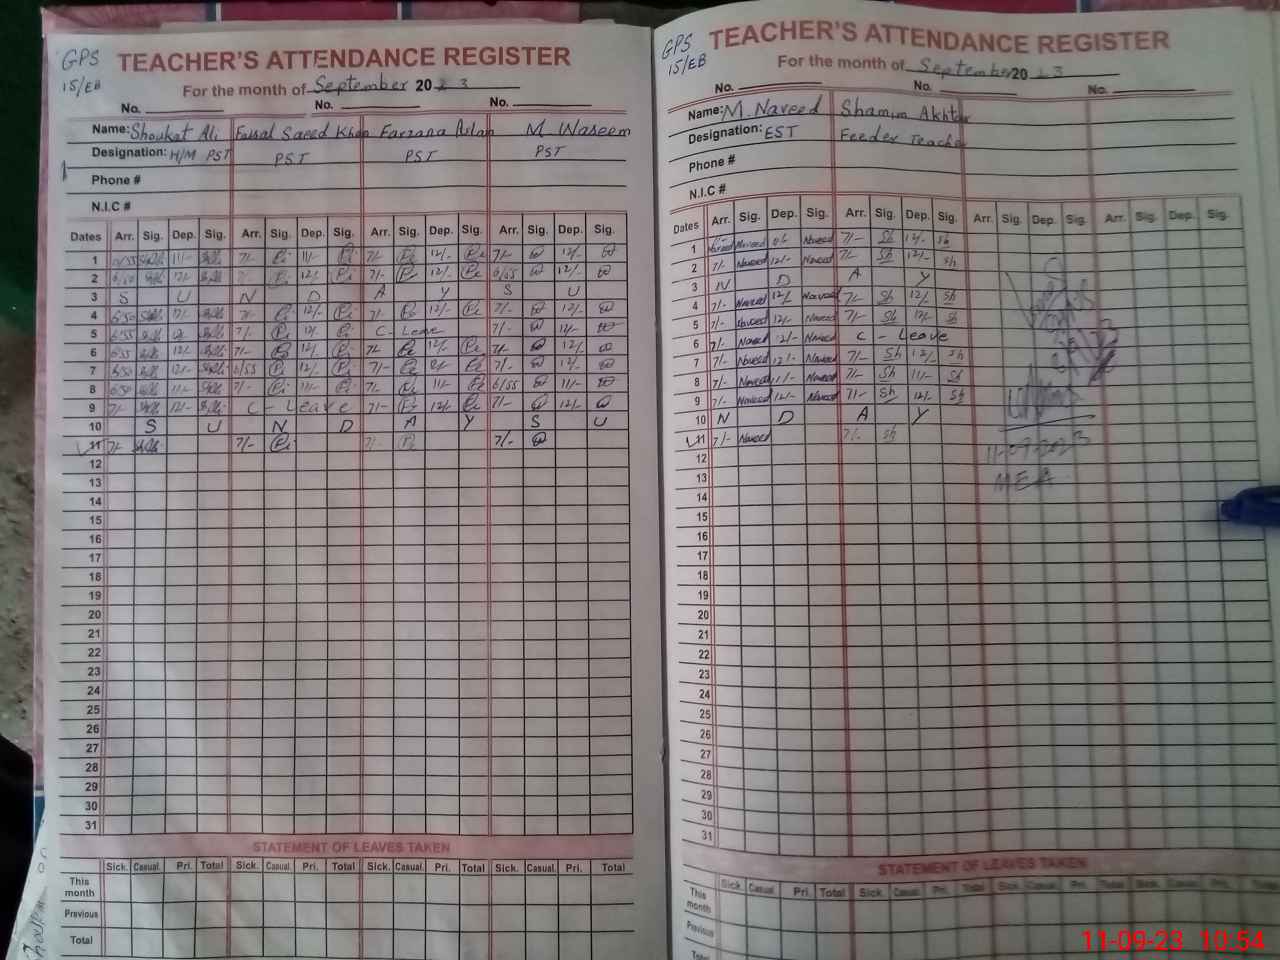 GPS
15/EB
TEACHER'S ATTENDANCE REGISTER
For the month of September 2023
No. No. No.
Name: Shoukat Ali Faisal Saeed Khan Farzana Aslam M. Waseem
Designation: H/M PST PST PST PST
Phone #
N.I.C #
Dates Arr. Sig. Dep. Sig. Arr. Sig. Dep. Sig. Arr. Sig. Dep. Sig. Arr. Sig. Dep. Sig.
1 11/- 7/- 11/- 7/- 12/- 7/- 12/-
2 12/- 12/- 7/- 12/- 6/55 12/-
3 S U N D A Y S U
4 6/50 12/- 7/- 12/- 7/- 12/- 7/- 12/-
5 6/55 12 7/- 12/- C - Leave 7/- 12/-
6 6/55 12/- 7/- 12/- 7/- 12/- 7/- 12/-
7 6/50 12/- 6/55 12/- 7/- 7/- 12/-
8 6/50 11/- 7/- 11/- 7/- 11/- 6/55 11/-
9 7/- 12/- C - Leave 7/- 12/- 7/- 12/-
10 S U N D A Y S U
11 7/- 7/- 7/- 7/-
12
13
14
15
16
17
18
19
20
21
22
23
24
25
26
27
28
29
30
31
STATEMENT OF LEAVES TAKEN
Sick. Casual. Pri. Total Sick. Casual. Pri. Total Sick. Casual. Pri. Total Sick. Casual. Pri. Total
This month
Previous
Total
GPS
15/EB
TEACHER'S ATTENDANCE REGISTER
For the month of September 2023
No. No. No.
Name: M. Naveed Shamim Akhtar
Designation: EST Feeder Teacher
Phone #
N.I.C #
Dates Arr. Sig. Dep. Sig. Arr. Sig. Dep. Sig. Arr. Sig. Dep. Sig. Arr. Sig. Dep. Sig.
1 Naveed Naveed 7/- Sh 12/- Sh
2 7/- Naveed 12/- Naveed 7/- Sh 12/- Sh
3 N D A Y
4 7/- Naveed 12/- Naveed 7/- Sh 12/- Sh
5 7/- Naveed 12/- Naveed 7/- Sh 12/- Sh
6 7/- Naveed 12/- Naveed C - Leave
7 7/- Naveed 12/- Naveed 7/- Sh 12/- Sh
8 7/- Naveed 11/- Naveed 7/- Sh 11/- Sh
9 7/- Naveed 12/- Naveed 7/- Sh 12/- Sh
10 N D A Y
11 7/- Naveed 7/- Sh
11-09-2023
12
13 MEA
14
15
16
17
18
19
20
21
22
23
24
25
26
27
28
29
30
31
STATEMENT OF LEAVES TAKEN
Sick. Casual. Pri. Total Sick. Casual. Pri. Total Sick. Casual. Pri. Total Sick. Casual. Pri. Total
This month
Previous
Total
11-09-23 10:54